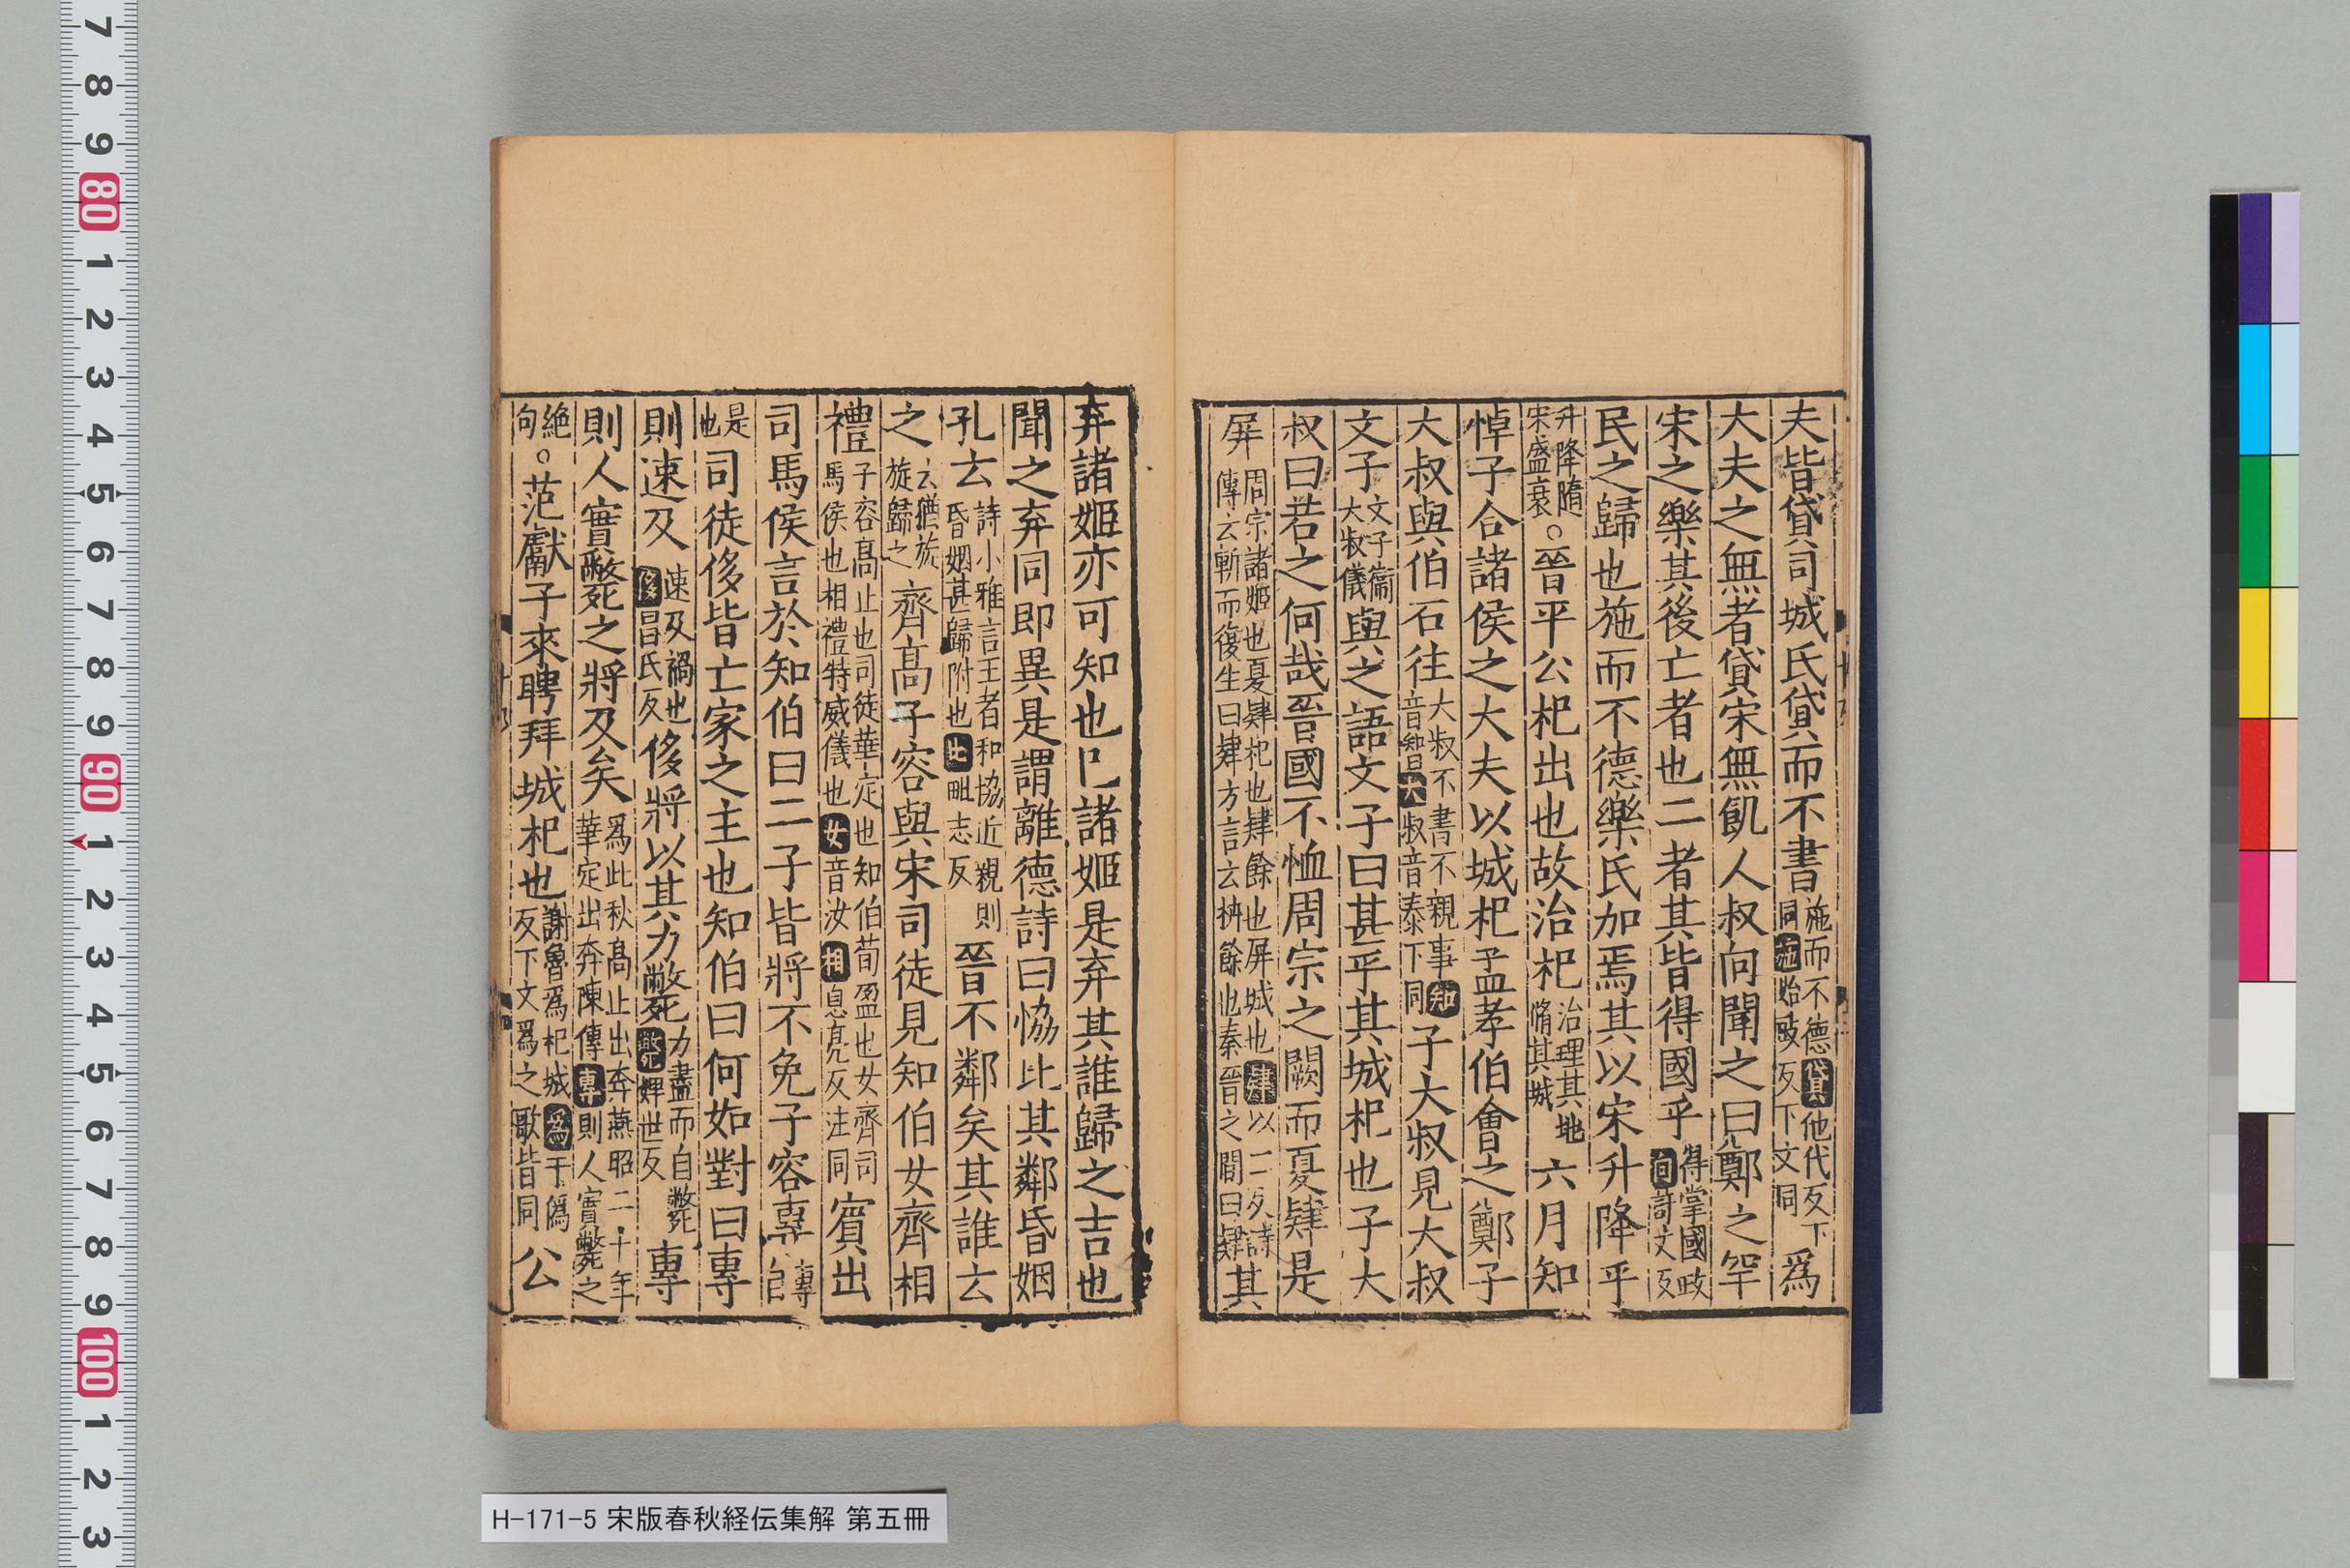 夫皆貸司城氏貸而不書施而不德貸他代反下同施始豉反下文同爲
大夫之無者貸宋無飢人叔向聞之曰鄭之罕
宋之樂其後亡者也二者其皆得國乎得掌國政向許丈反
民之歸也施而不德樂氏加焉其以宋升降乎
升降隋宋盛衰○晉平公杞出也故治杞治理其地脩其城六月知
悼子合諸侯之大夫以城杞孟孝伯會之鄭子
大叔與伯石往大叔不書不親事知音智大叔音泰下同子大叔見大叔
文子文子衛大叔儀與之語文子曰甚乎其城杞也子大
叔曰若之何哉晉國不恤周宗之闕而夏肄是
屏周宗諸姬也夏肄杞也肄餘也屏城也肄以二反詩傳云斬而復生曰肄方言云枿餘也秦晉之間曰肄其
弃諸姬亦可知也已諸姬是弃其誰歸之吉也
聞之弃同即異是謂離德詩曰恊比其鄰昏姻
孔云詩小雅言王者和協近親則昏姻甚歸附也比毗志反晉不鄰矣其誰云
之云猶旋旋歸之齊高子容與宋司徒見知伯女齊相
禮子容高止也司徒華定也知伯荀盈也女齊司馬侯也相禮特威儀也女音汝相息亮反注同賓出
司馬侯言於知伯曰二子皆將不免子容專專自
是也司徒侈皆亡家之主也知伯曰何如對曰專
則速及速及禍也侈昌氏反侈將以其力斃力盡而自斃斃婢世反專
則人實斃之將及矣爲此秋高止出奔燕昭二十年華定出奔陳傳專則人實斃之
絶句○范獻子來聘拜城杞也謝魯爲杞城爲于僞反下文爲之歌皆同公
H-171-5 宋版春秋経伝集解 第五冊
7 8 9 80 1 2 3 4 5 6 7 8 9 90 1 2 3 4 5 6 7 8 9 100 1 2 3